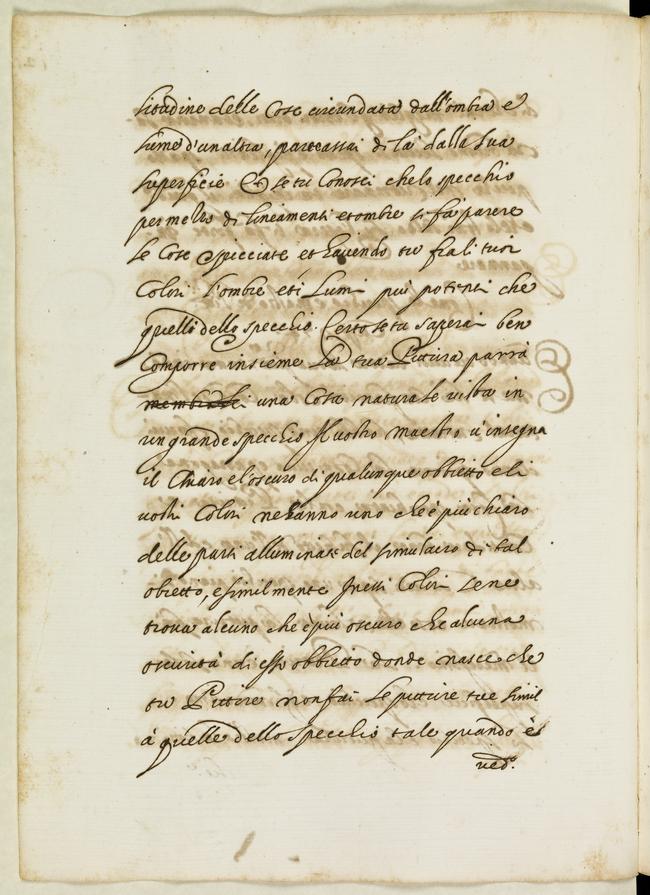 litudine delle Cose circundata dall'ombra e
lume d'un altra, parecassai di la dalla sua
superficie & se tu Conosci che lo specchio
per mezzo di lineamenti et ombre ti fa parere
le Cose spicciate et havendo tu fra li tuoi
Colori l'ombre et i Lumi più potenti che
quelli dello specchio. Certo se tu saperai ben
Comporre insieme La tua Pittura parrà
una Cosa naturale vista in
un grande specchio Il vostro maestro v'insegna
il Chiaro e l'oscuro di qualunque obbietto e li
vostri Colori ne hanno uno che è più chiaro
delle parti alluminate del simulacro di tal
obietto, e similmente Inessi Colori se ne
trova alcuno che è più oscuro che alcuna
oscurità di esso obbietto donde nasce che
tu Pittore non fai le pitture tue simil
à quelle dello specchio tale quando è
ved.º